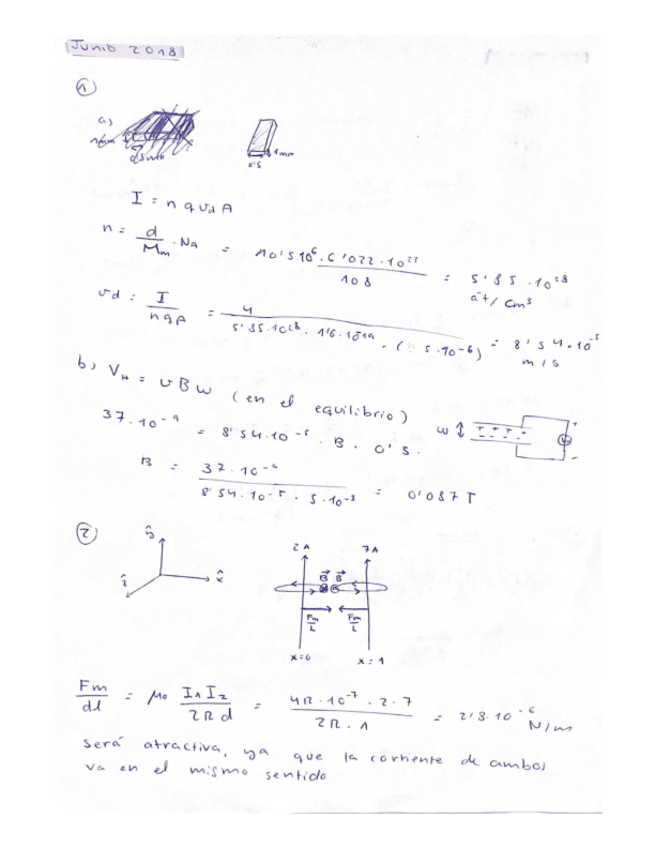 Junio 2018
1
a)
1mm
0'5
I = n q vd A
n = d / Mm · Na = 10'5·10^6 · 6'022·10^23 / 108 = 5'85·10^28 at/cm³
vd = I / nqA = 4 / 5'85·10^28 · 1'6·10^-19 · (5·10^-6) = 8'54·10^-5 m/s
b) VH = v B w (en el equilibrio)
37·10^-9 = 8'54·10^-5 · B · 0'5.
w + + + + - - - - VH + -
B = 37·10^-9 / 8'54·10^-5 · 5·10^-3 = 0'087 T
2
ŷ
ẑ x̂
2A 7A
B B
Fm/L Fm/L
x=0 x=1
Fm/dl = μ0 I1 I2 / 2π d = 4π·10^-7 · 2·7 / 2π·1 = 2'8·10^-6 N/m
será atractiva, ya que la corriente de ambos
va en el mismo sentido